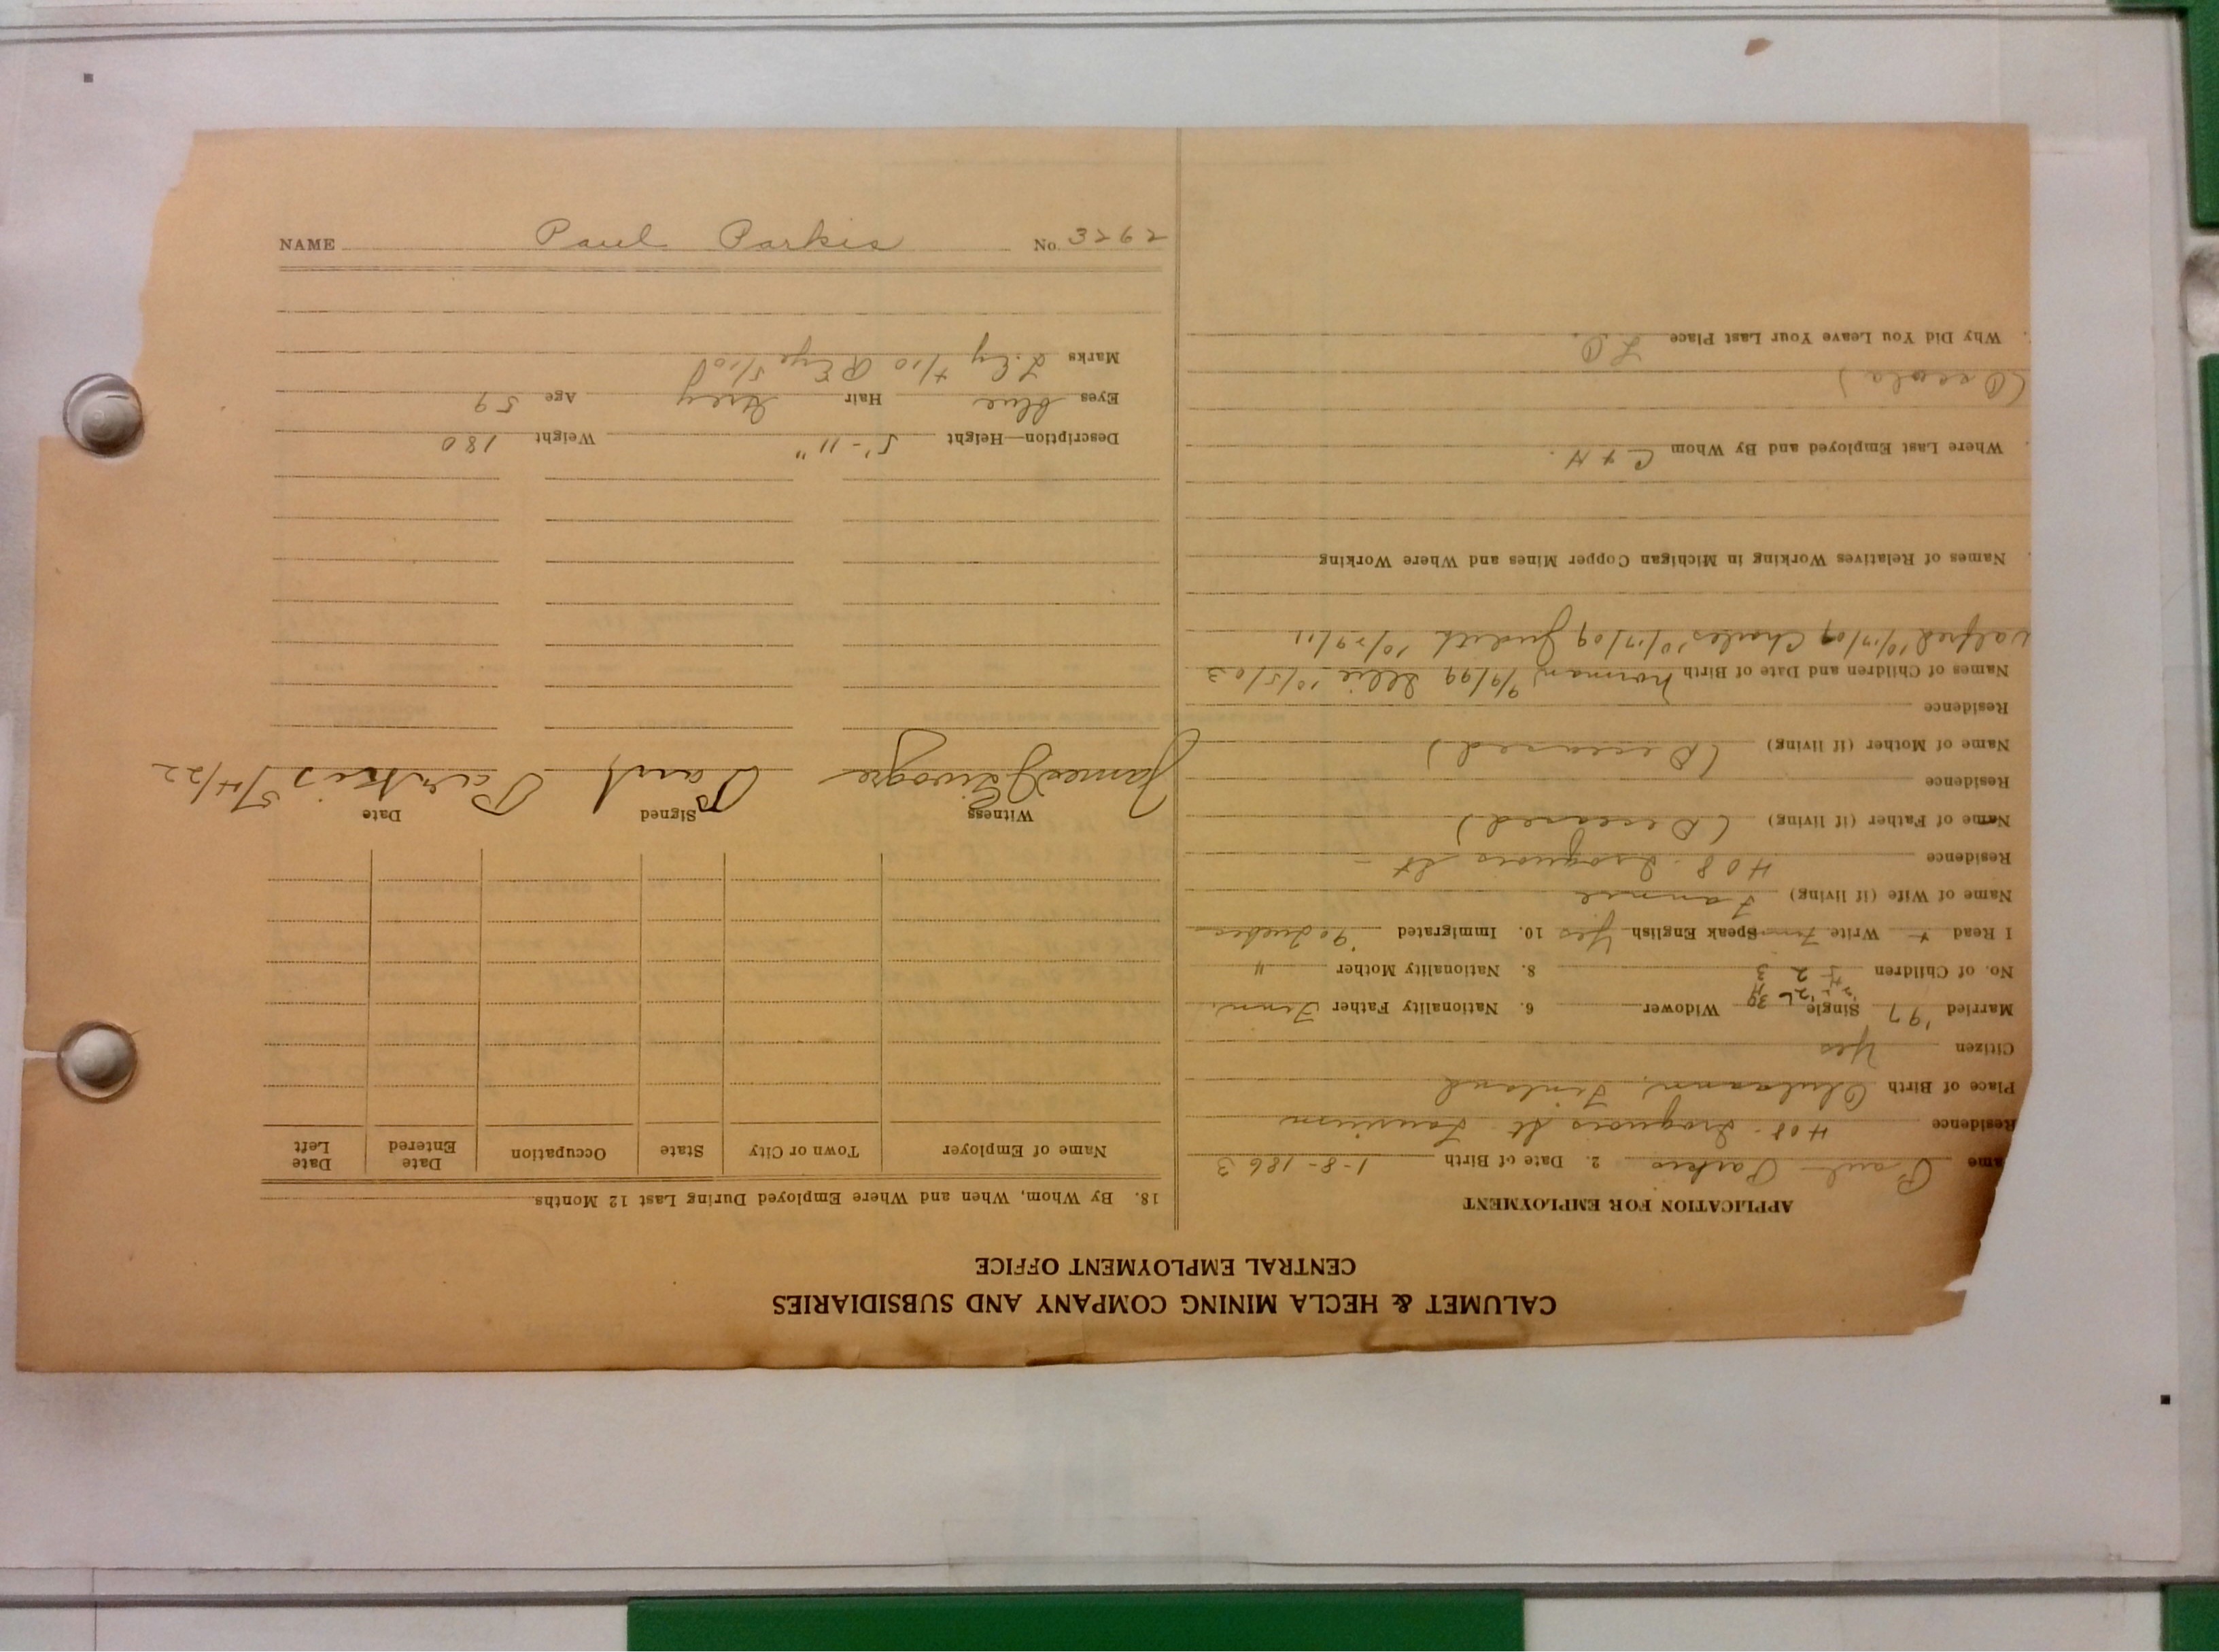 NAME Paul Parkis No. 3262
CALUMET & HECLA MINING COMPANY AND SUBSIDIARIES
CENTRAL EMPLOYMENT OFFICE
APPLICATION FOR EMPLOYMENT
ame Paul Parkis 2. Date of Birth 1-8-1863
Residence 408- Iroquois St- Laurium
Place of Birth Finland
Citizen Yes
Married '97 Single Widower 6. Nationality Father Finn.
No. of Children 5 2 3 8. Nationality Mother "
I Read + Write Finn Speak English Yes 10. Immigrated '90 Quebec
Name of Wife (if living) Fannie
Residence 408- Iroquois St-
Name of Father (if living) (Deceased)
Residence
Name of Mother (if living) (Deceased)
Residence
Names of Children and Date of Birth Norman 9/9/99 Ellie 10/5/03
Walfred 10/17/09 Charles 10/17/09 Judith 10/29/11
Names of Relatives Working in Michigan Copper Mines and Where Working
Where Last Employed and By Whom C + H.
(Osceola)
Why Did You Leave Your Last Place L.O.
18. By Whom, When and Where Employed During Last 12 Months
Name of Employer Town or City State Occupation Date Entered Date Left
Witness Signed Date
James Paul Parkis 5/4/22
Description—Height 5'-11" Weight 180
Eyes blue Hair Grey Age 59
Marks L. Ey 4/10 R Eye 5/10